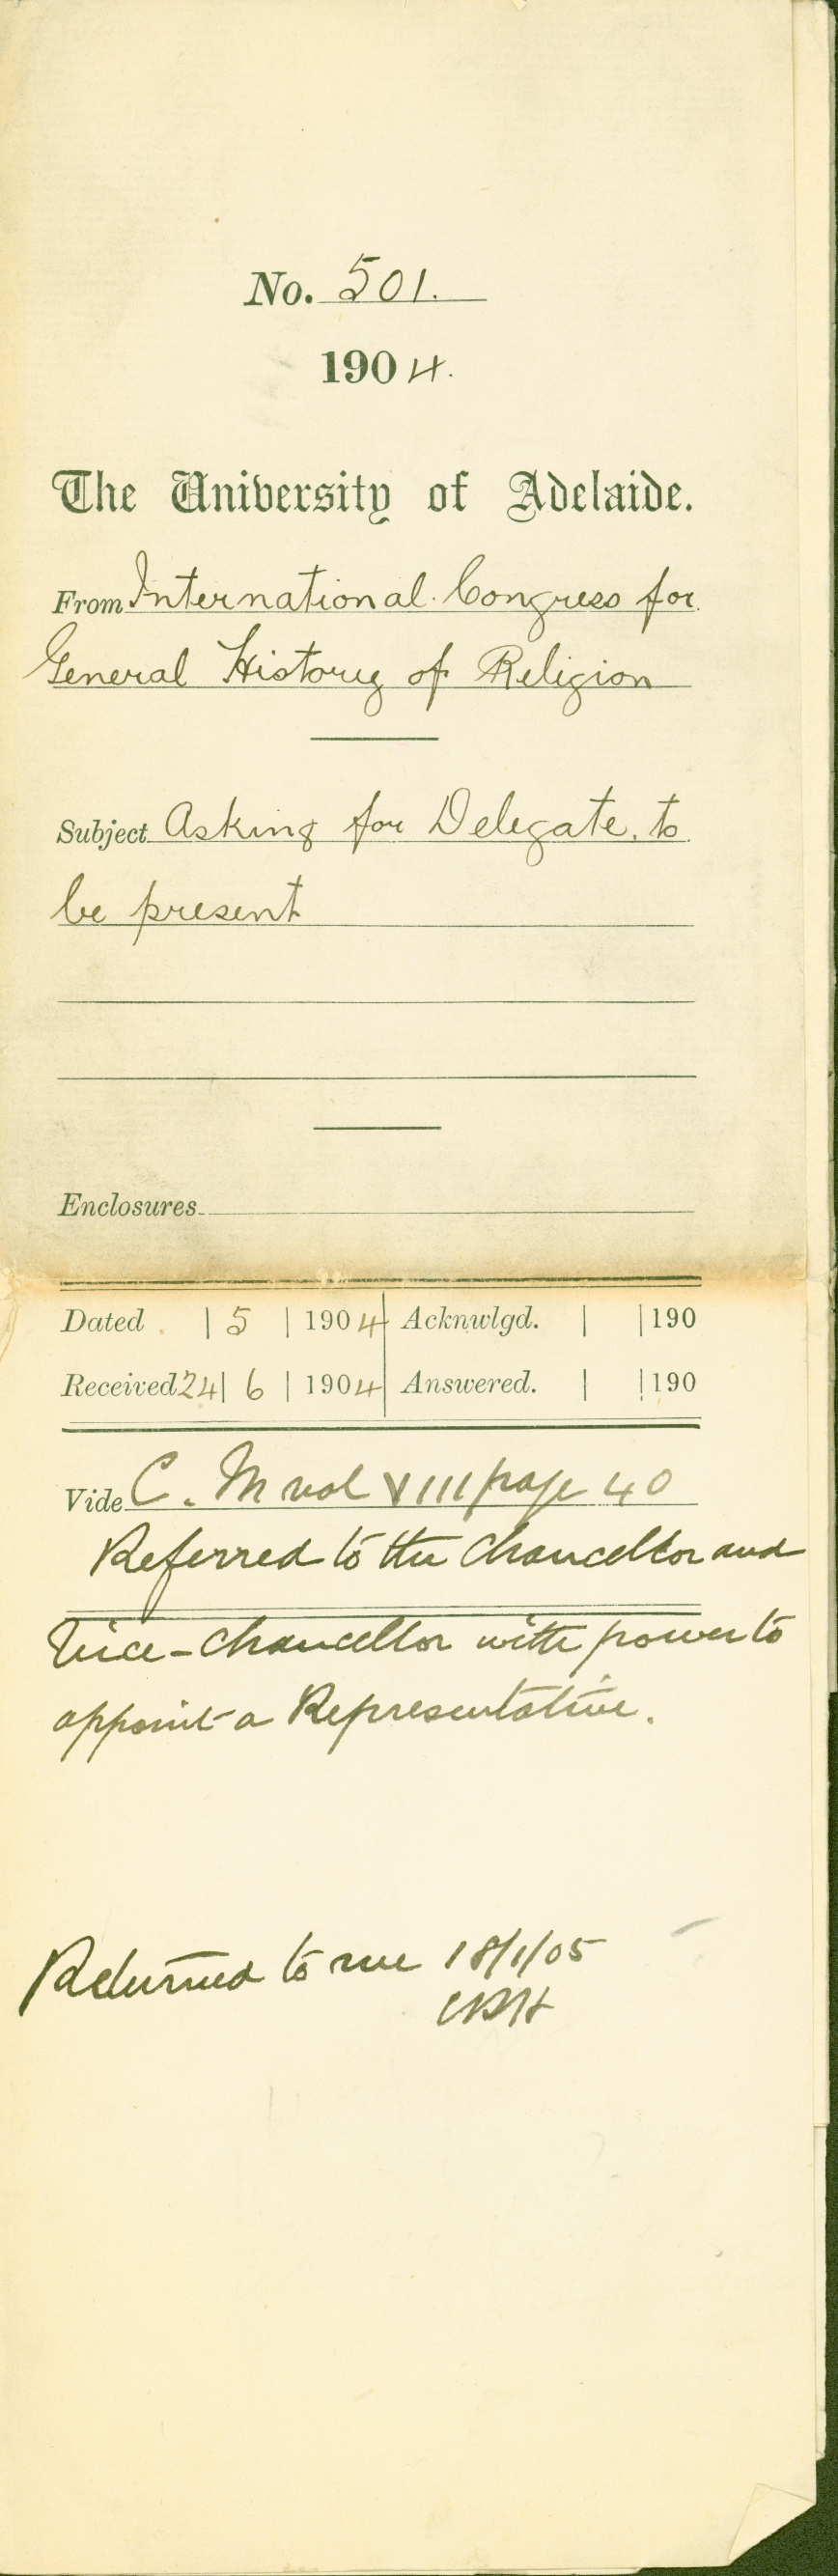 No. 501.
1904.
The University of Adelaide.
From International Congress for
General History of Religion
Subject Asking for Delegate to
be present
Enclosures
Dated | 5 | 1904 Acknwlgd. | | 190
Received 24 | 6 | 1904 Answered. | | 190
Vide C. M vol VIII page 40
Referred to the Chancellor and
Vice-Chancellor with power to
appoint a Representative.
Returned to me 18/1/05